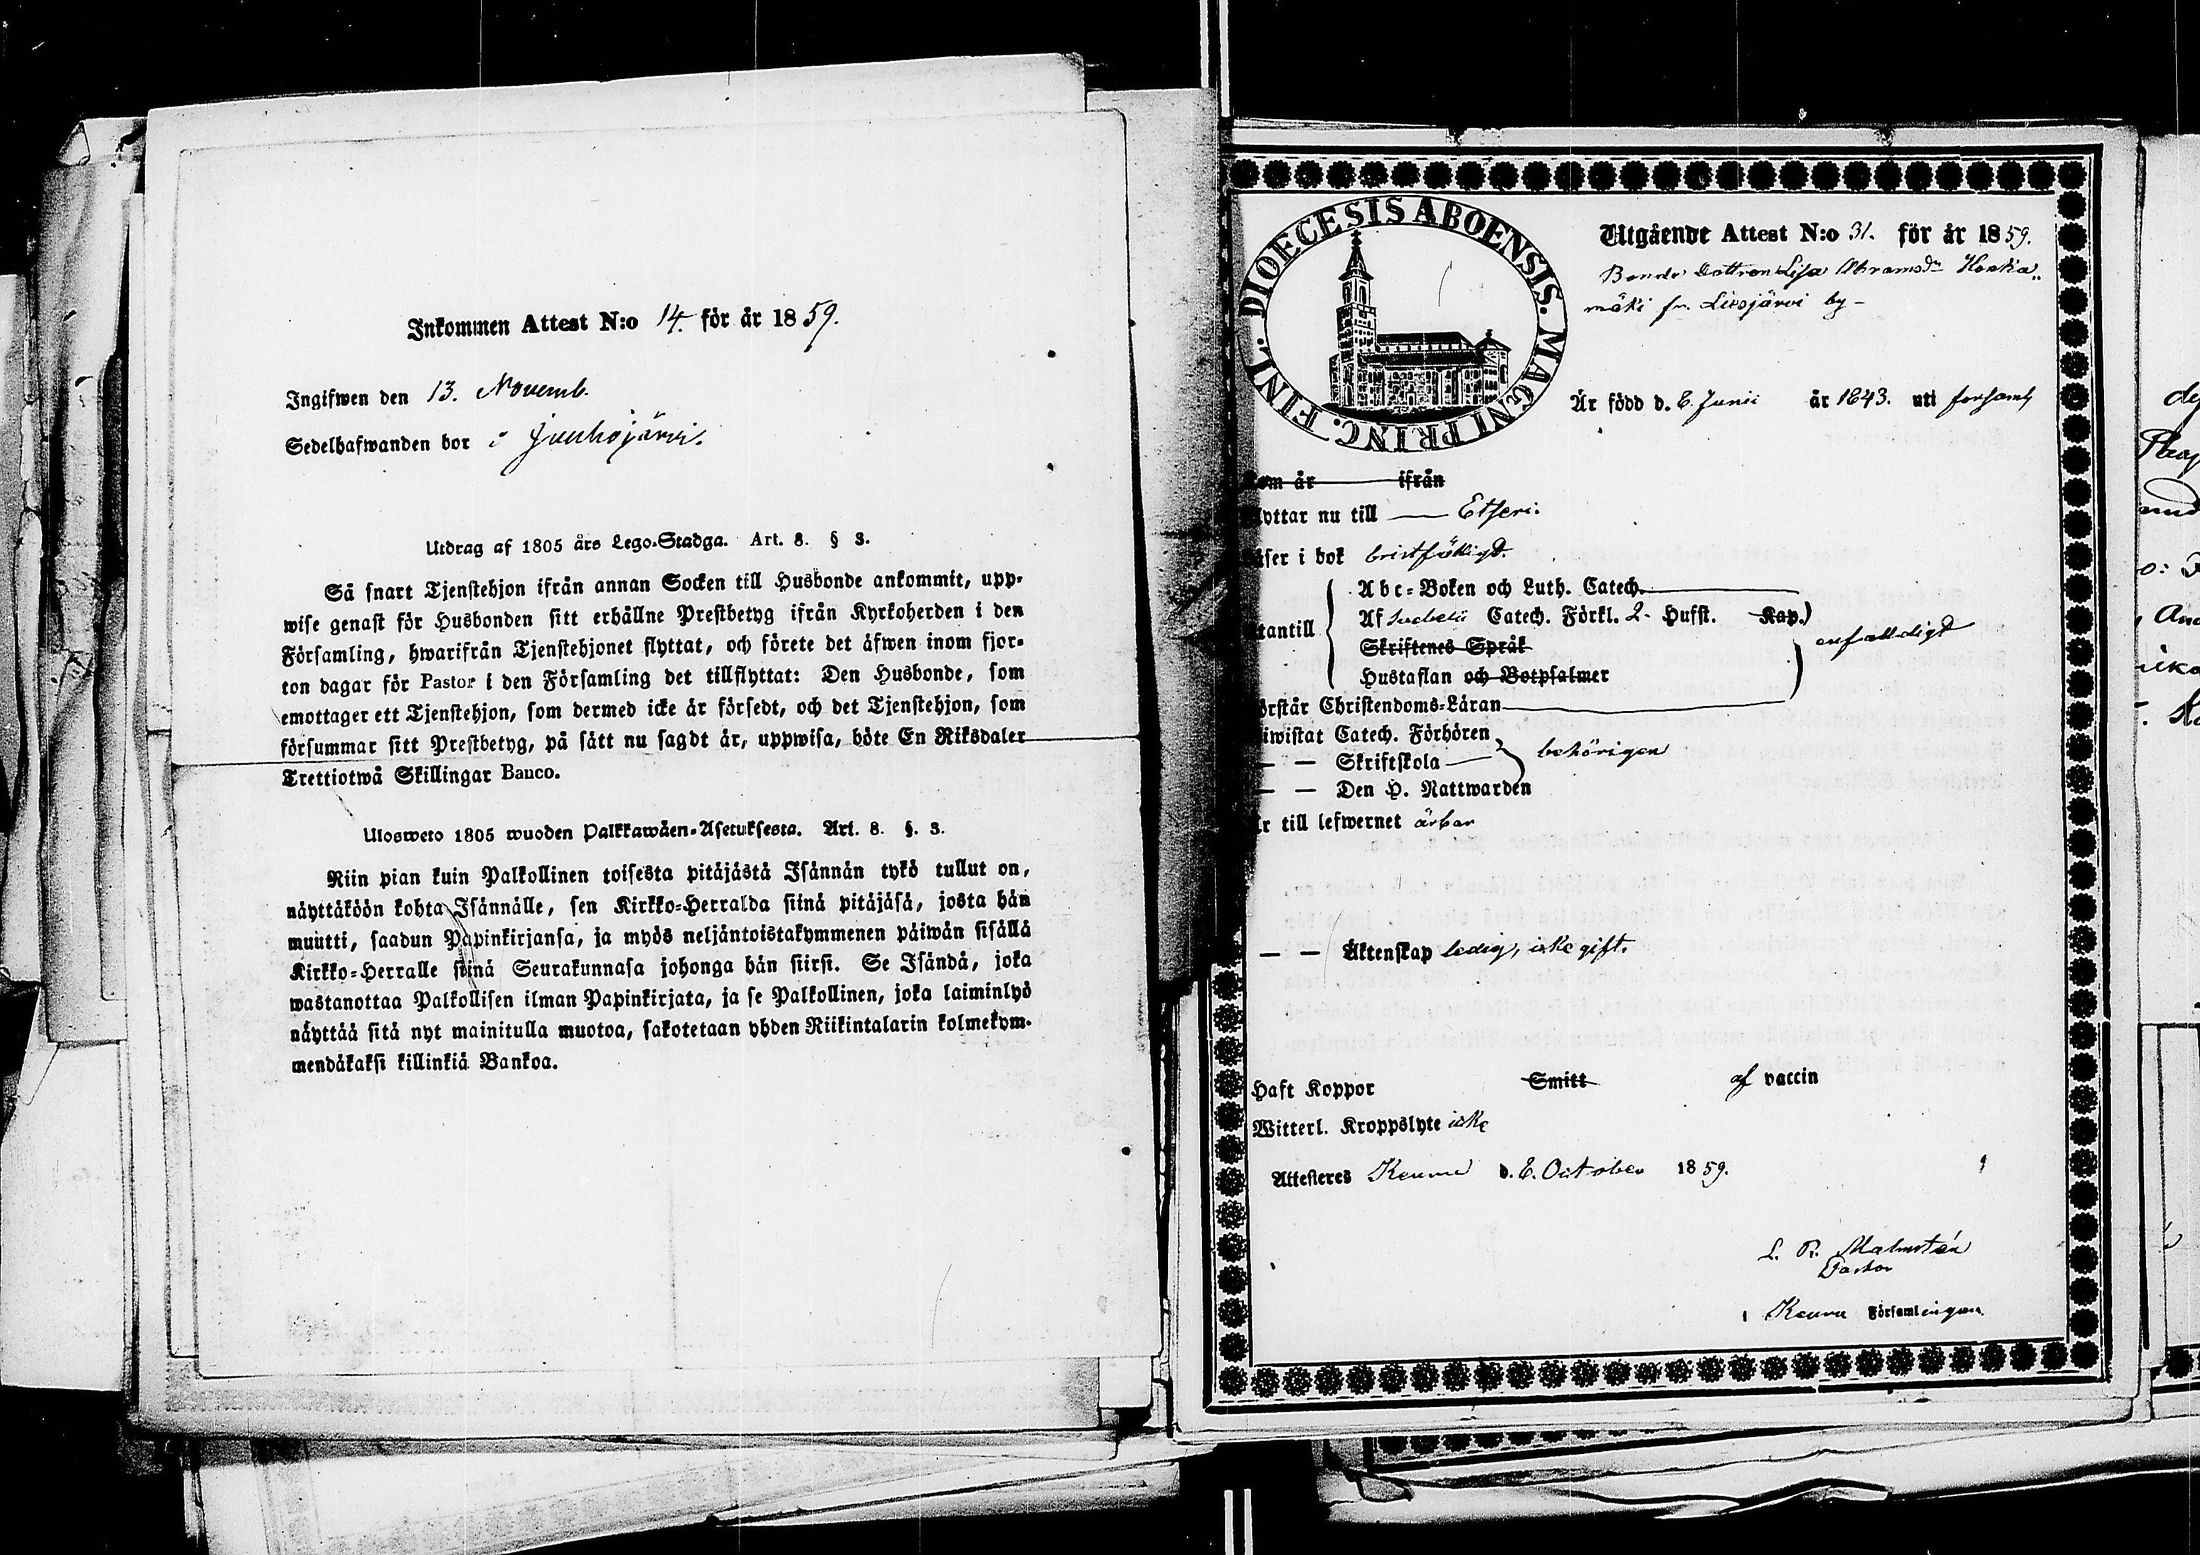 Inkommen Attest N:o 14. för år 1859.
Ingifwen den 13. Novemb.
Sedelhafwanden bor i Juuhojärvi.
Utdrag af 1805 års Lego-Stadga. Art. 8. § 3.
Så snart Tjenstehjon ifrån annan Socken till Husbonde ankommit, upp-
wise genast för Husbonden sitt erhållne Prestbetyg ifrån Kyrkoherden i den
Församling, hwarifrån Tjenstehjonet flyttat, och förete det äfwen inom fjor-
ton dagar för Pastor i den Församling det tillflyttat: Den Husbonde, som
emottager ett Tjenstehjon, som dermed icke är försedt, och det Tjenstehjon, som
försummar sitt Prestbetyg, på sätt nu sagdt är, uppwisa, böte En Riksdaler
Trettiotwå Skillingar Banco.
Ulosweto 1805 wuoden Palkkawäen-Asetuksesta. Art. 8. §. 3.
Niin pian kuin Palkollinen toisesta pitäjästä Isännän tykö tullut on,
näyttäköön kohta Isännälle, sen Kirkko-Herralda siinä pitäjäsä, josta hän
muutti, saadun Papinkirjansa, ja myös neljäntoistakymmenen päiwän sisällä
Kirkko-Herralle siinä Seurakunnasa johonga hän siirsi. Se Isändä, joka
wastanottaa Palkollisen ilman Papinkirjata, ja se Palkollinen, joka laiminlyö
näyttää sitä nyt mainitulla muotoa, sakotetaan yhden Riikintalarin kolmekym-
mendäkaksi killinkiä Bankoa.
DIOECESIS ABOENSIS. MAGNI PRINC. FINL.
Utgående Attest N:o 31. för år 1859.
Bonde dottren Lisa Abramsdr Honka-
mäki fr. Liesjärvi by -
Är född d. 8. Junii år 1843. uti forsaml
Kom år ifrån
Flyttar nu till Etseri.
Läser i bok bristfälligt.
Abc-Boken och Luth. Catech.
Af Svebelii Catech. Förkl. 2 Hufst. Kap.
Utantill enfalldigt
Skriftenes Språk
Hustaflan och Botpsalmer
Förstår Christendoms-Läran
Biwistat Catech. Förhören
— — Skriftskola behörigen
— — Den H. Nattwarden
Är till lefwernet ärbar
— — Äktenskap ledig, icke gift.
Haft Koppor Smitt af vaccin
Witterl. Kroppslyte icke
Attesteres Keuru d. 8. October 1859.
Malmstén
Pastor
i Keuru Församlingen.